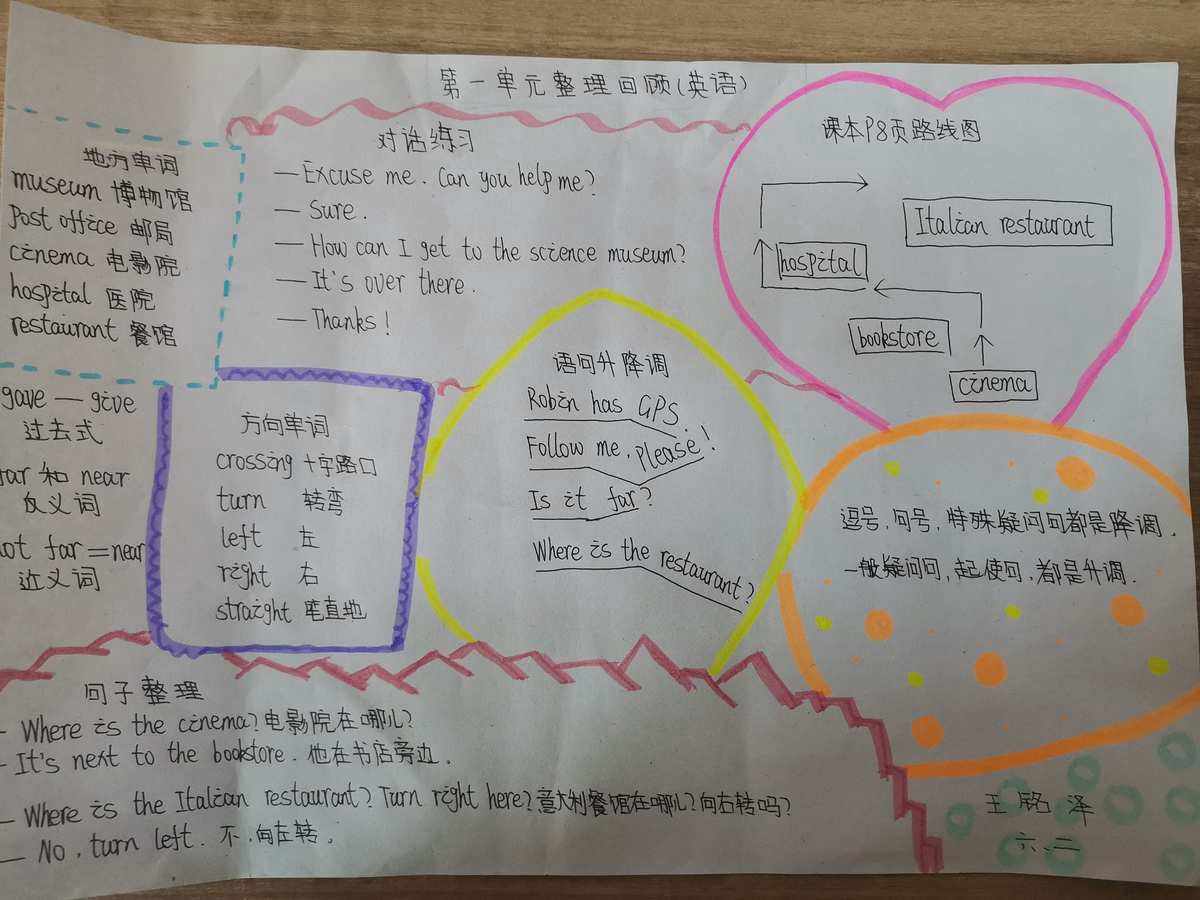 第一单元整理回顾(英语)
地方单词
museum 博物馆
post office 邮局
cinema 电影院
hospital 医院
restaurant 餐馆
对话练习
—Excuse me. Can you help me?
— Sure.
— How can I get to the science museum?
— It's over there.
— Thanks!
课本P8页路线图
Italian restaurant
hospital
bookstore
cinema
gave — give
过去式
far 和 near
反义词
not far = near
近义词
方向单词
crossing 十字路口
turn 转弯
left 左
right 右
straight 笔直地
语句升降调
Robin has GPS.
Follow me, please!
Is it far?
Where is the restaurant?
逗号,句号,特殊疑问句都是降调.
一般疑问句,起使句,都是升调.
句子整理
- Where is the cinema?电影院在哪儿?
- It's next to the bookstore. 他在书店旁边.
— Where is the Italian restaurant? Turn right here?意大利餐馆在哪儿?向右转吗?
— No, turn left. 不,向左转.
王铭泽
六、二